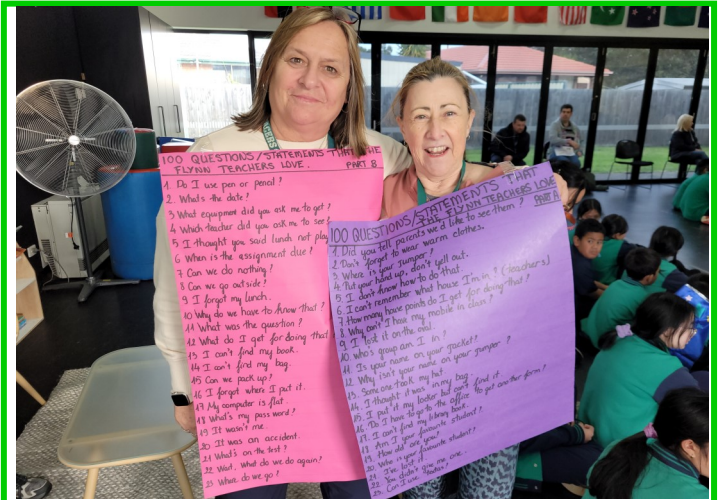 100 QUESTIONS/STATEMENTS THAT THE
FLYNN TEACHERS LOVE. PART B
1 Do I use pen or pencil?
2. What's the date?
3 What equipment did you ask me to get?
4 Which teacher did you ask me to see?
5 I thought you said lunch not play
6 When is the assignment due?
7 Can we do nothing?
8 Can we go outside?
9 I forgot my lunch.
10 Why do we have to know that?
11 What was the question?
12 What do I get for doing that
13 I can't find my book.
14 I can't find my bag.
15 Can we pack up?
16 I forgot where I put it.
17 My computer is flat.
18 What's my password?
19 It wasn't me.
20 It was an accident.
21 What's on the test?
22 Wait. What do we do again?
23 Where do we go?
100 QUESTIONS/STATEMENTS THAT
THE FLYNN TEACHERS LOVE
PART A
1. Did you tell parents we'd like to see them?
2. Don't forget to wear warm clothes.
3. Where is your jumper?
4. Put your hand up, don't yell out.
5. I don't know how to do that.
6. I can't remember what house I'm in? (Teachers)
7. How many house points do I get for doing that?
8. Why can't I have my mobile in class?
9 I lost it on the oval.
10 who's group am I in?
11. Is your name on your jacket?
12. Why isn't your name on your jumper?
13. Some one took my hat.
14. I thought it was in my bag.
15. I put it my locker but can't find it.
16. Do I have to go to the office to get another form?
17. I can't find my library book.
18. Am I your favourite student?
19. How old are you?
20. Who is your favourite student?
21. I've lost it.
22. You didn't give me one.
23. Can I use